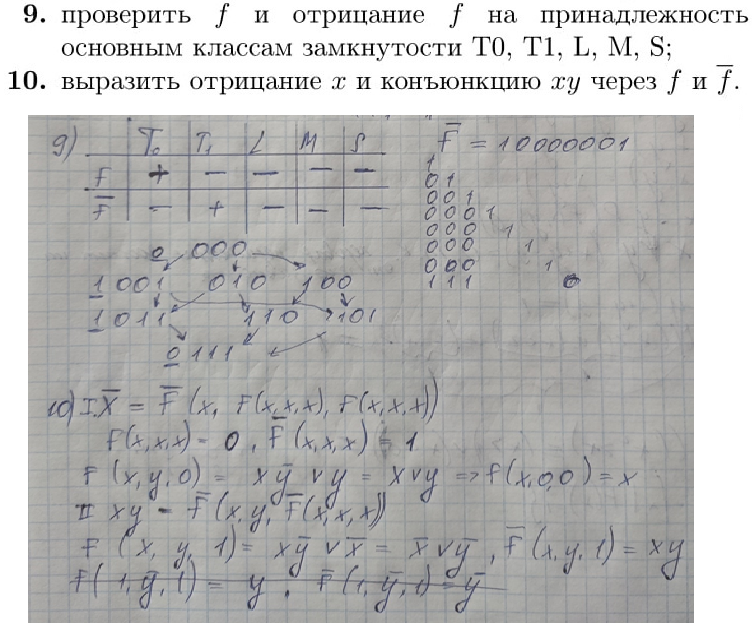 9. проверить f и отрицание f на принадлежность
основным классам замкнутости T0, T1, L, M, S;
10. выразить отрицание x и конъюнкцию xy через f и f̅.
9) T₀ T₁ L M S
F + − − − −
F̅ − + − − −
F̅ = 10000001
1
01
001
0001
000 1
000 1
000 1
111 0
0 000
1 001 010 100
1 011 110 101
0 111
10) I. x̅ = F̅ (x, F(x,x,x), F(x,x,x))
F(x,x,x) = 0, F̅ (x,x,x) = 1
F (x,y,0) = xy̅ ∨ y = x∨y ⇒ f(x,0,0) = x
II xy = F̅ (x,y,F̅(x,x,x))
F (x, y, 1) = xy̅ ∨ x̅ = x̅ ∨ y̅, F̅ (x,y,1) = xy
F( 1, y̅, 1) = y, F̅ (1, y̅, 1) = y̅